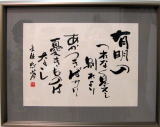 有明の
つれなく見えし
別れより
あかつきばかり
憂きものは
なし